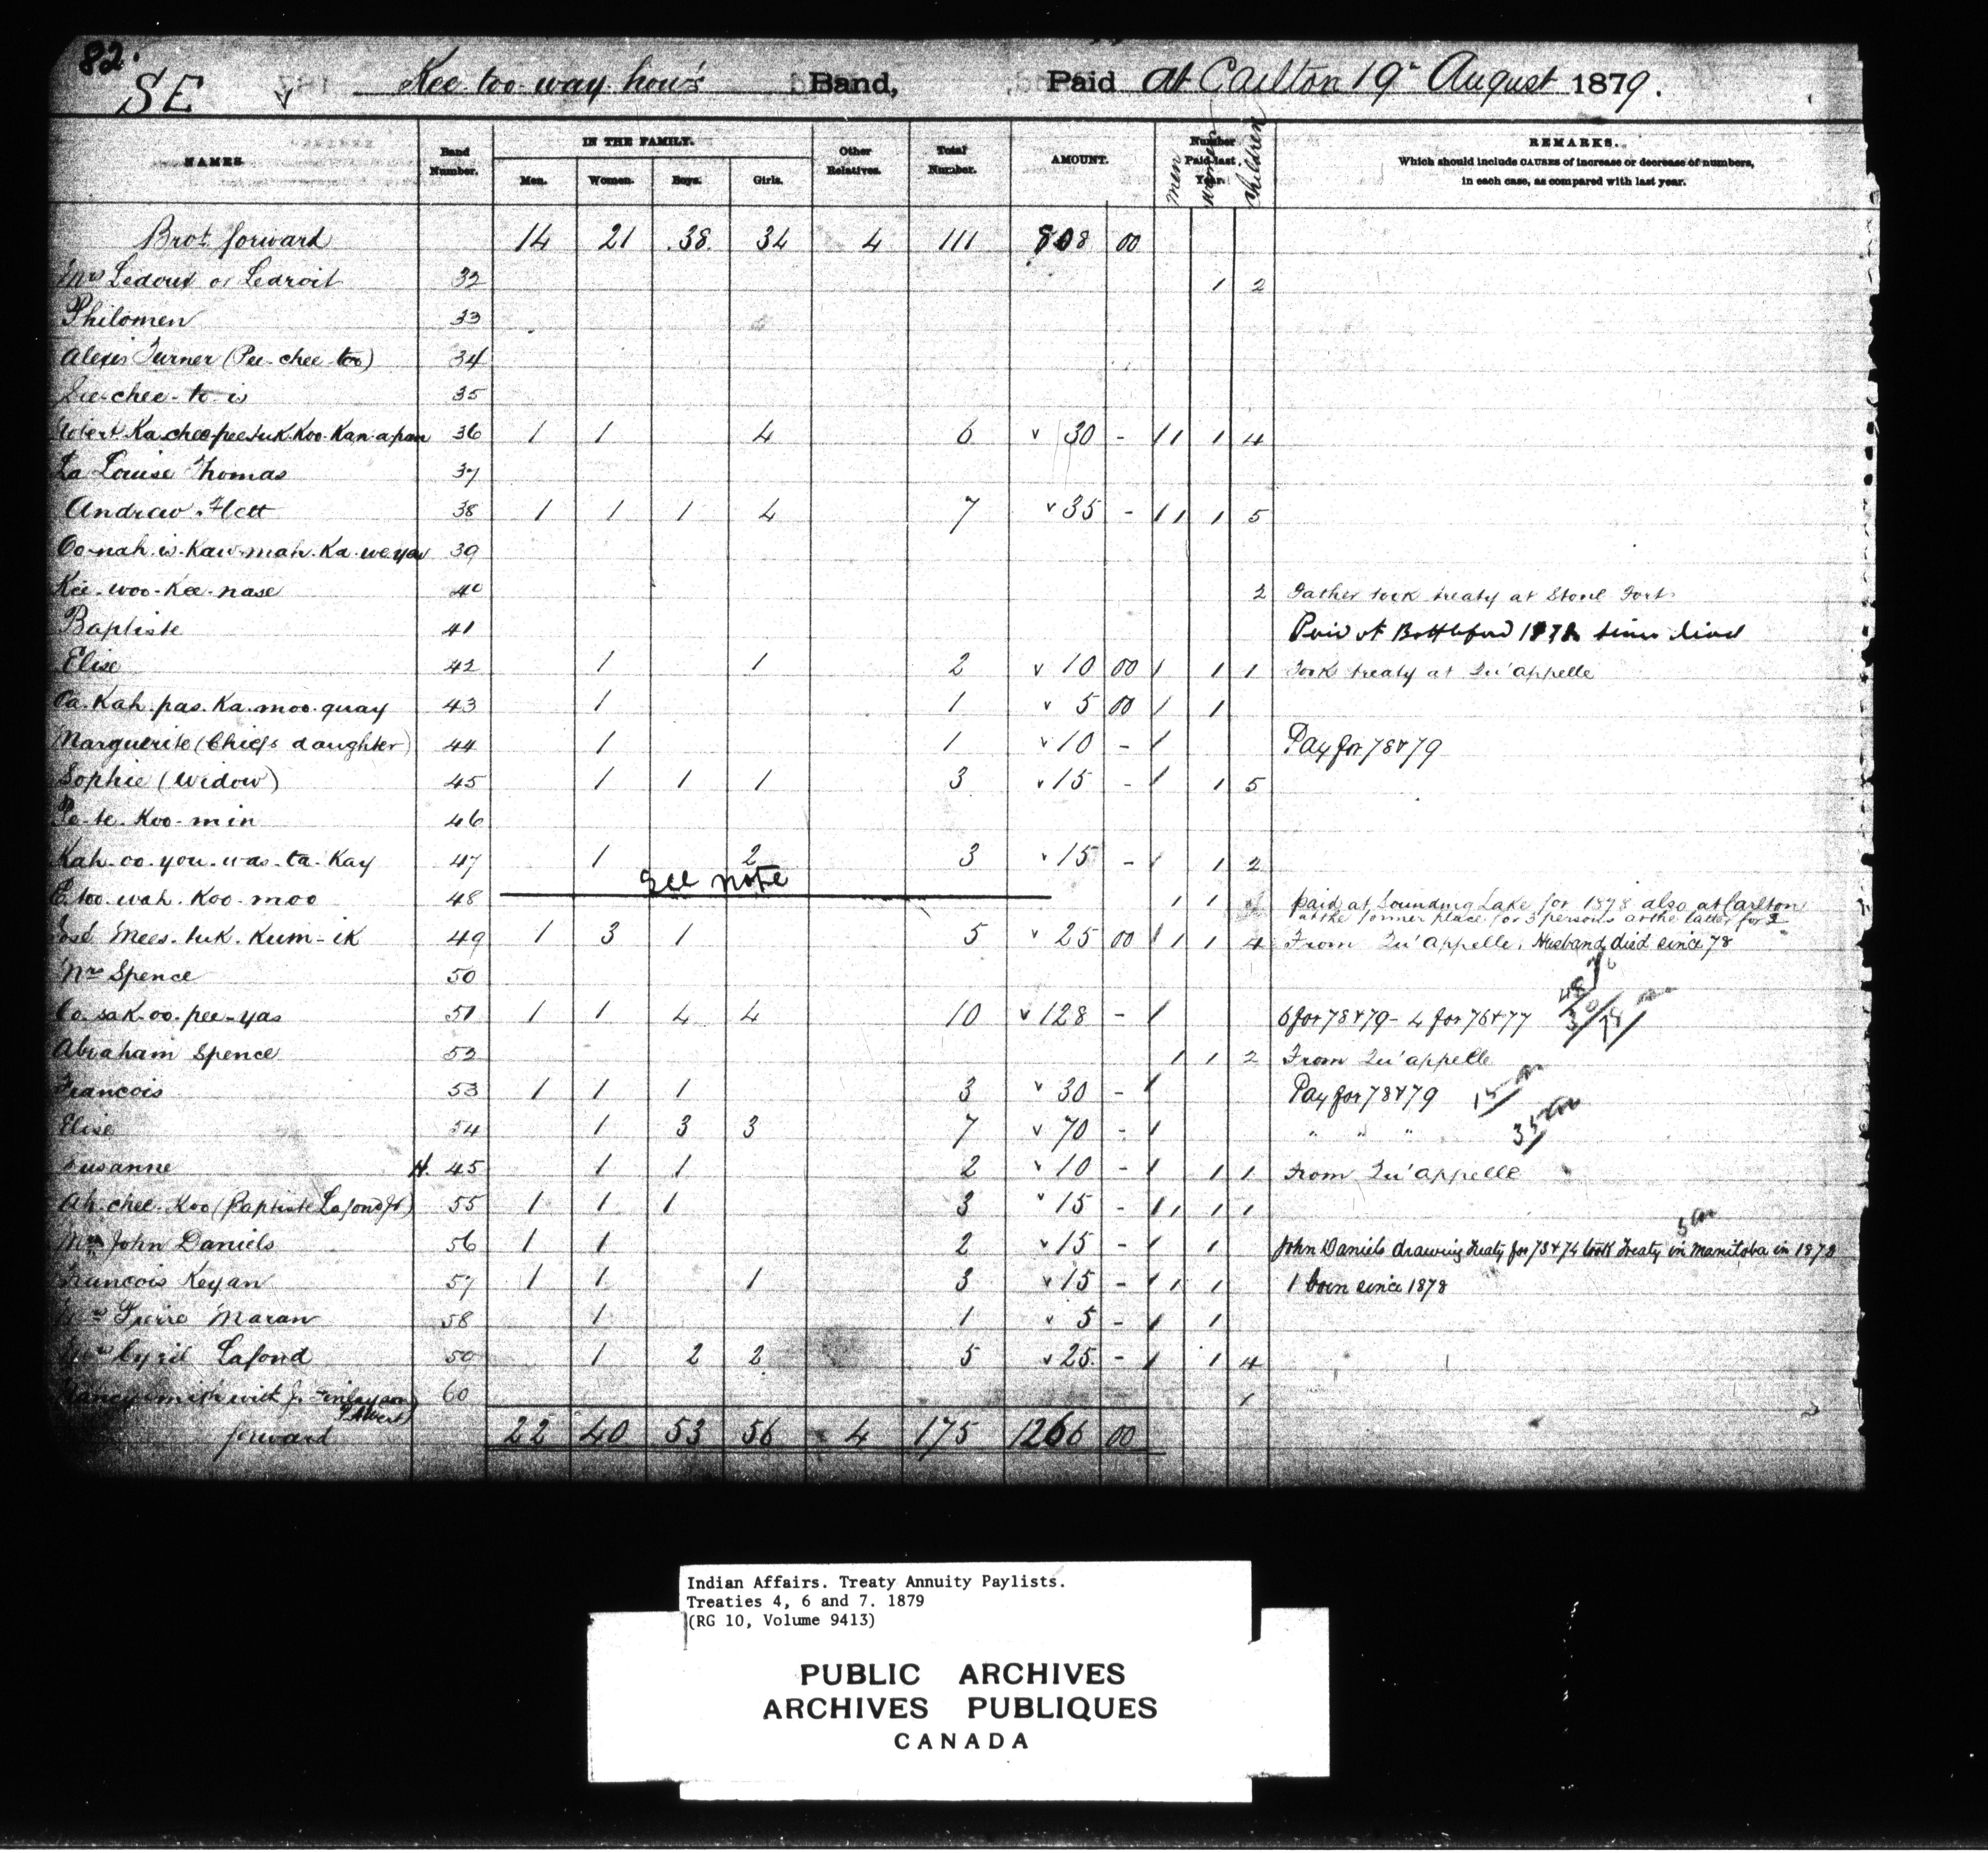 82.
SE Kee-too-way-how's Band, Paid at Carlton 19th August 1879.
NAMES. Band Number. IN THE FAMILY. Men. Women. Boys. Girls. Other Relatives. Total Number. AMOUNT. Number Paid last Year. men women children REMARKS. Which should include CAUSES of increase or decrease of numbers, in each case, as compared with last year.
Brot forward 14 21 38 34 4 111 808 00
Mrs Ledoux or Ledroit 32 1 2
Philomen 33
Alexis Turner (Pee-chee-too) 34
35
Ka-chee-pee-tuk-Koo-Kan-apan 36 1 1 4 6 v 30 - 1 1 1 4
La Louise Thomas 37
Andrew Flett 38 1 1 1 4 7 v 35 - 1 1 1 5
Oo-nah-is-Kaw-mah-Ka-we-yaw 39
Kee-woo-Kee-nase 40 2 Father took treaty at Stone Fort
Baptiste 41 Paid at Battleford 1878 since died
Elise 42 1 1 2 v 10 00 1 1 1 Took treaty at Qu'appelle
Ca-Kah-pas-Ka-moo-quay 43 1 1 v 5 00 1 1
Marguerite (Chiefs daughter) 44 1 1 v 10 - 1 Pay for 78 & 79
Sophie (Widow) 45 1 1 1 3 v 15 - 1 1 5
Po-te-Koo-min 46
Kah-oo-you-was-ta-Kay 47 1 2 3 v 15 - 1 1 2
See note
48 1 1 paid at Sounding Lake for 1878 also at Carlton
at the former place for 3 persons at the latter for 2
José Mees-tuk-Kum-ik 49 1 3 1 5 v 25 00 1 1 1 4 From Qu'appelle, Husband died since 78
Mrs Spence 50
Oo-sak-oo-pee-yas 51 1 1 4 4 10 v 128 - 1 6 for 78 & 79 - 4 for 76 & 77
Abraham Spence 52 1 1 2 From Qu'appelle
Francois 53 1 1 1 3 v 30 - 1 Pay for 78 & 79
Elise 54 1 3 3 7 v 70 - 1 " " "
Susanne 45 1 1 2 v 10 - 1 1 1 From Qu'appelle
Ah-chee-Koo (Baptiste Lafond Jr) 55 1 1 1 3 v 15 - 1 1 1 1
Mrs John Daniels 56 1 1 2 v 15 - 1 1 John Daniels drawing treaty for 73 & 74 took Treaty in Manitoba in 1872
Francois Keyan 57 1 1 1 3 v 15 - 1 1 1 1 born since 1878
Mrs Pierre Maran 58 1 1 v 5 - 1 1
Mrs Cyril Lafond 59 1 2 2 5 v 25 - 1 1 4
Nancy Smith with J. Finlayson 60 1
P. Albert
forward 22 40 53 56 4 175 1266 00
Indian Affairs. Treaty Annuity Paylists.
Treaties 4, 6 and 7. 1879
(RG 10, Volume 9413)
PUBLIC ARCHIVES
ARCHIVES PUBLIQUES
CANADA